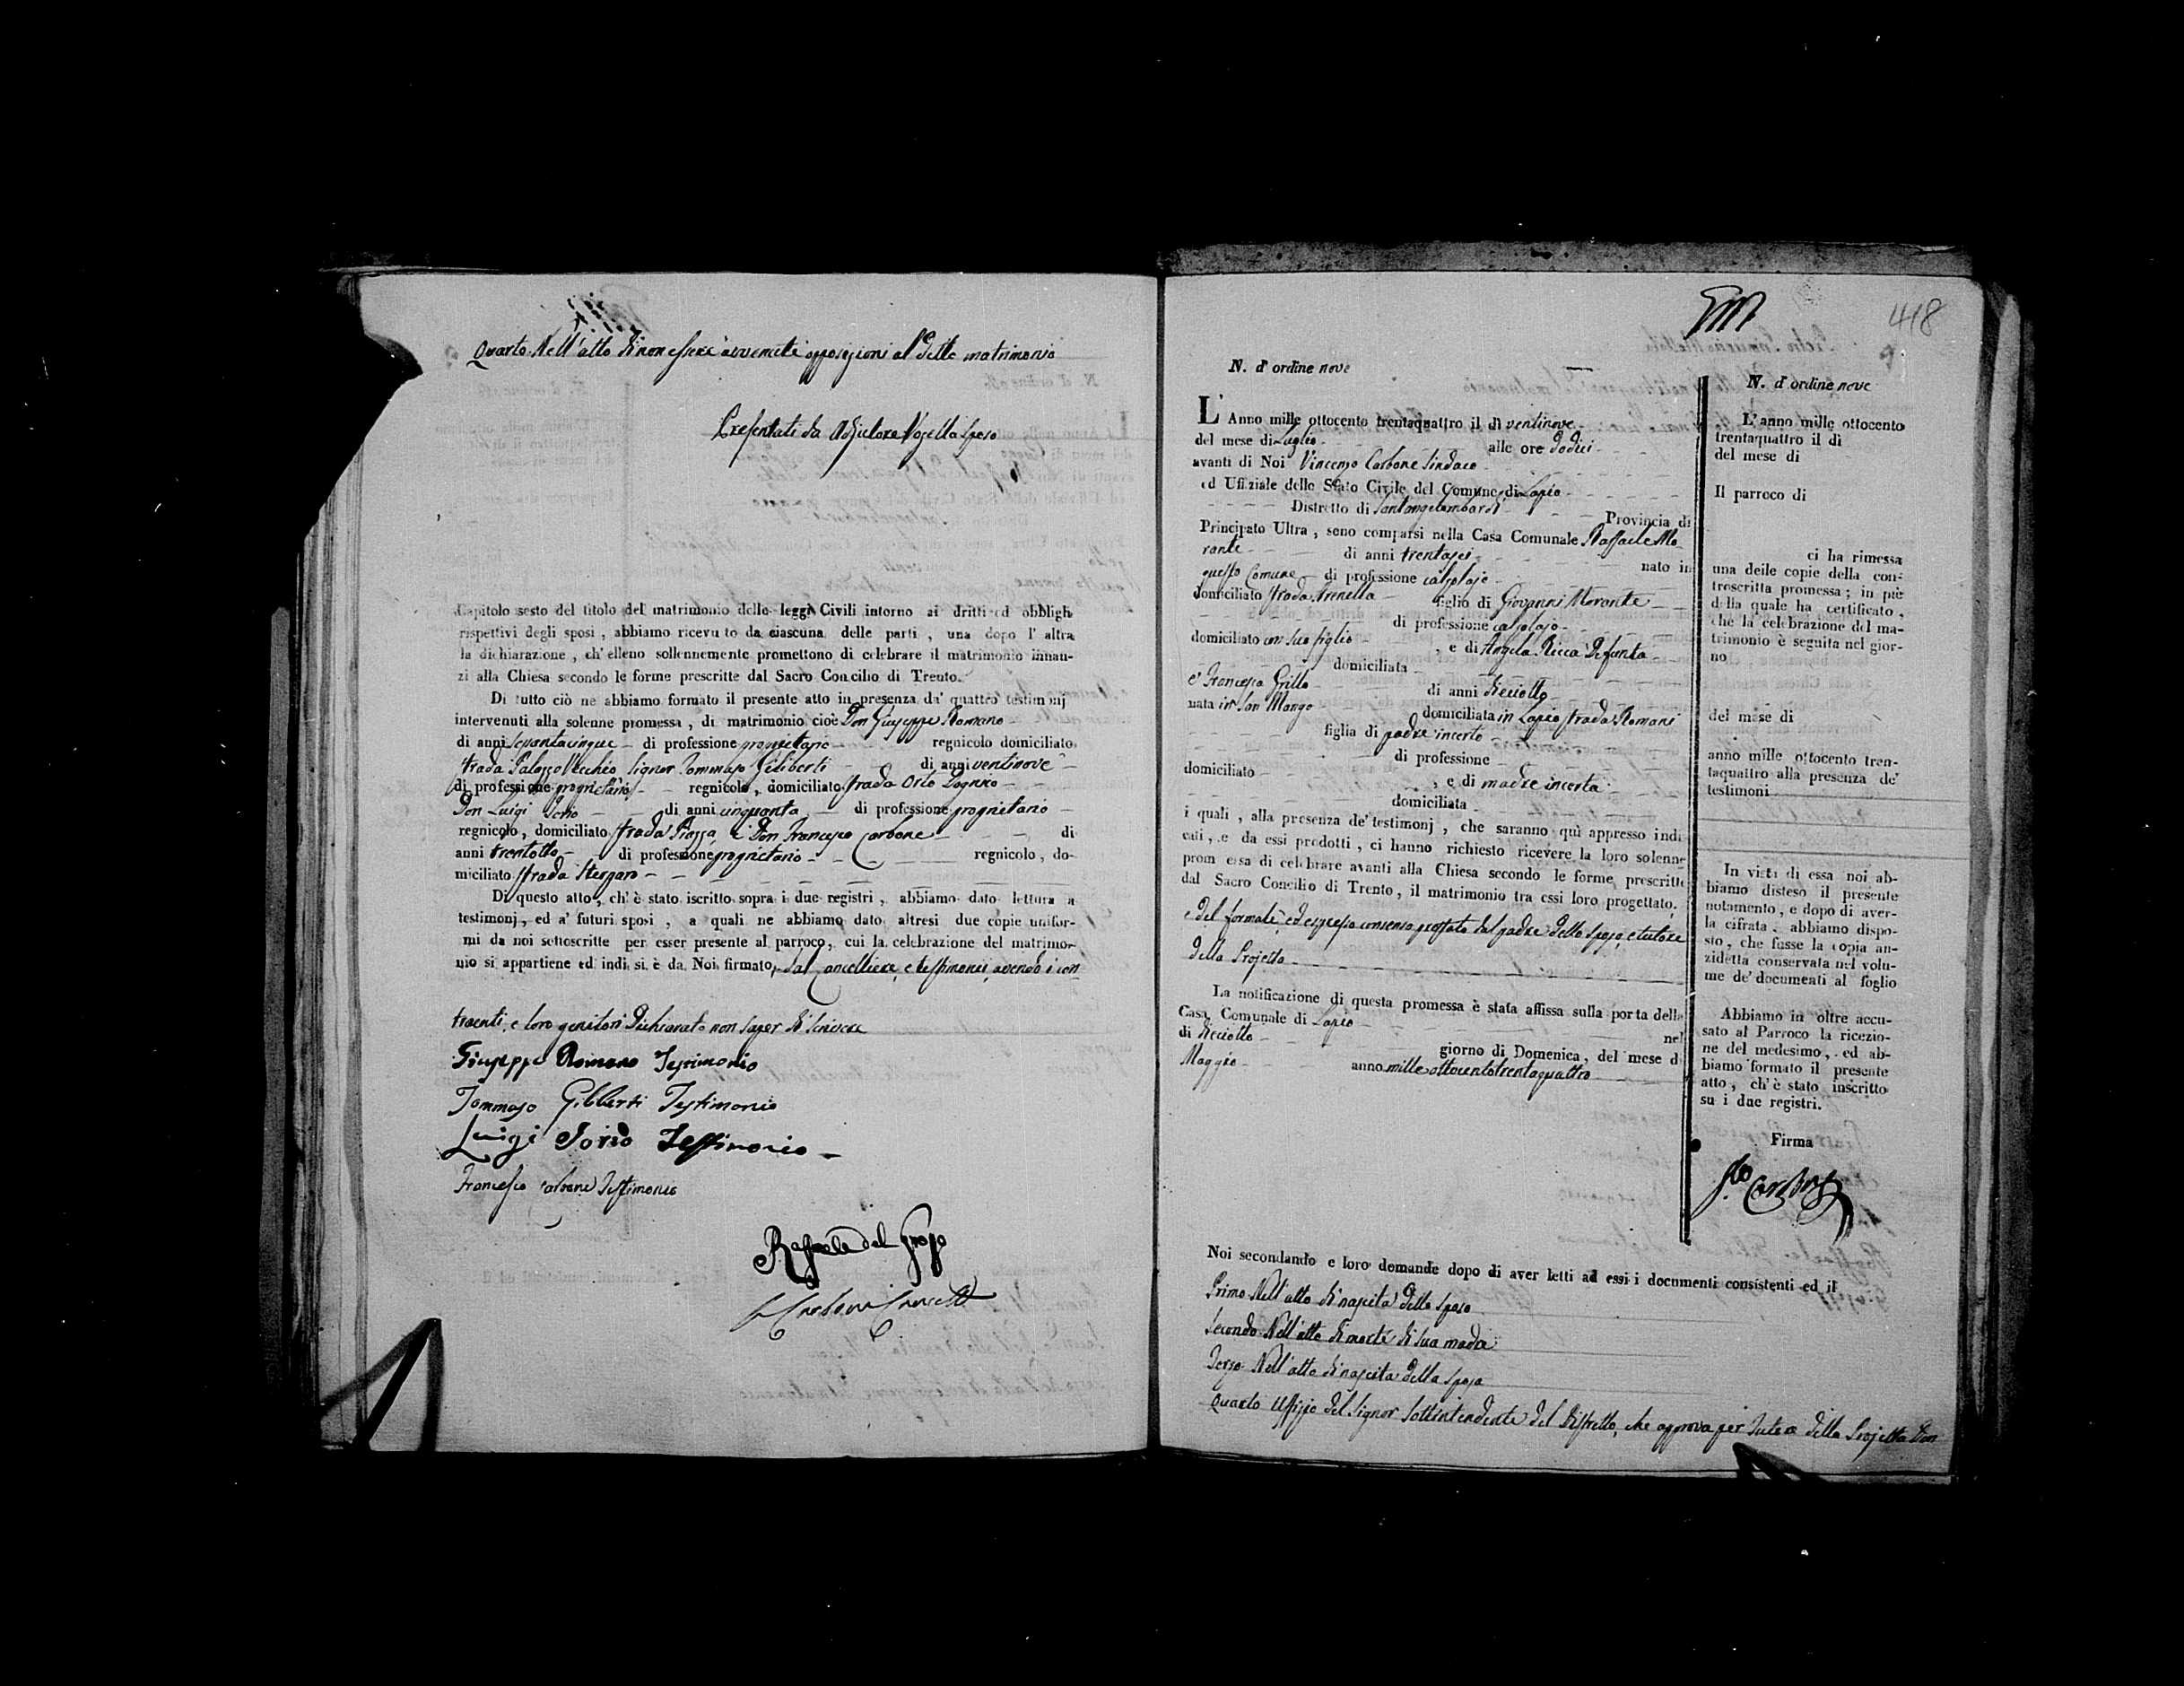 Quarto Nell'atto di non essere avvenute opposizioni al detto matrimonio
Presentati da Vozella sposo
Capitolo sesto del titolo del matrimonio delle leggi Civili intorno ai dritti ed obblighi
rispettivi degli sposi , abbiamo ricevuto da ciascuna delle parti , una dopo l' altra
la dichiarazione , ch'elleno sollennemente promettono di celebrare il matrimonio innan-
zi alla Chiesa secondo le forme prescritte dal Sacro Concilio di Trento.
Di tutto ciò ne abbiamo formato il presente atto in presenza da' quattro testimonj
intervenuti alla solenne promessa , di matrimonio cioè Don Giuseppe Romano
di anni settantacinque di professione proprietario regnicolo domiciliato
strada Palazzo Vecchio Signor Tommaso Giliberti di anni ventinove
di professione proprietario regnicolo, domiciliato strada Orto
Don Luigi Iorio di anni cinquanta di professione proprietario
regnicolo, domiciliato strada Piazza, e Don Francesco Carbone di
anni trentotto di professione proprietario regnicolo, do-
miciliato strada
Di questo atto, ch'è stato iscritto sopra i due registri , abbiamo dato lettura a
testimonj, ed a' futuri sposi , a quali ne abbiamo dato altresi due copie unifor-
mi da noi sottoscritte per esser presente al parroco, cui la celebrazione del matrimo-
nio si appartiene ed indi si è da Noi firmato, dal Cancelliere, e testimonii, avendo i con
traenti, e loro genitori dichiarato non saper di scrivere
Giuseppe Romano Testimonio
Tommaso Giliberti Testimonio
Luigi Iorio Testimonio
Francesco Carbone Testimonio
Raffaele del Grosso
418
9
N. d'ordine nove
L'Anno mille ottocento trentaquattro il dì ventinove
del mese di Luglio alle ore dodici
avanti di Noi Vincenzo Carbone Sindaco
ed Uffiziale dello Stato Civile del Comune di Lapio
Distretto di Santangelombardi Provincia di
Principato Ultra , sono comparsi nella Casa Comunale Raffaele Mo
rante di anni trentasei nato in
questo Comune di professione calzolajo
domiciliato strada Arenella figlio di Giovanni Morante
di professione calzolajo
domiciliato con suo figlio , e di Angela Ricca Defunta
domiciliata
e Francesca Grillo di anni dieciotto
nata in San Mango domiciliata in Lapio strada Romani
figlia di padre incerto
di professione
domiciliato , e di madre incerta
domiciliata
i quali , alla presenza de' testimonj , che saranno quì appresso indi
cati , e da essi prodotti , ci hanno richiesto ricevere la loro solenne
promessa di celebrare avanti alla Chiesa secondo le forme prescritte
dal Sacro Concilio di Trento, il matrimonio tra essi loro progettato,
e del formale, ed espresso consenso prestato dal padre dello sposo, e tutore
della Projetta
La notificazione di questa promessa è stata affissa sulla porta della
Casa Comunale di Lapio nel
di dieciotto giorno di Domenica, del mese di
Maggio anno mille ottocentotrentaquattro
N. d'ordine nove
L'anno mille ottocento
trentaquattro il dì
del mese di
Il parroco di
ci ha rimessa
una delle copie della con-
troscritta promessa; in piè
della quale ha certificato,
che la celebrazione del ma-
trimonio è seguita nel gior-
no
del mese di
anno mille ottocento tren-
taquattro alla presenza de'
testimoni
In vista di essa noi ab-
biamo disteso il presente
notamento, e dopo di aver-
la cifrata, abbiamo dispo-
sto, che fusse la copia an-
zidetta conservata nel volu-
me de' documenti al foglio
Abbiamo in oltre accu-
sato al Parroco la ricezio-
ne del medesimo, ed ab-
biamo formato il presente
atto, ch'è stato inscritto
su i due registri.
Firma
Carbone
Noi secondando e loro domande dopo di aver letti ad essi i documenti consistenti ed il
Primo Nell'atto di nascita dello sposo
Secondo Nell'atto di morte di sua madre
Terzo Nell'atto di nascita della sposa
Quarto Uffizio del Signor Sottintendente del Distretto, che approva per Tutore della Projetta Don